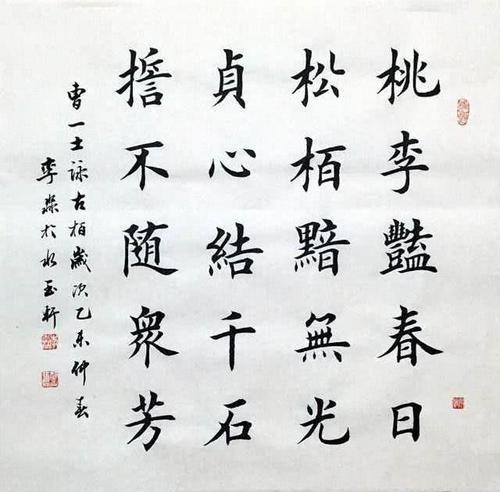 桃李豔春日
松栢黯無光
貞心結千石
擔不随衆芳
曹一士詠古柏歲次乙未仲春
李淼於水玉軒